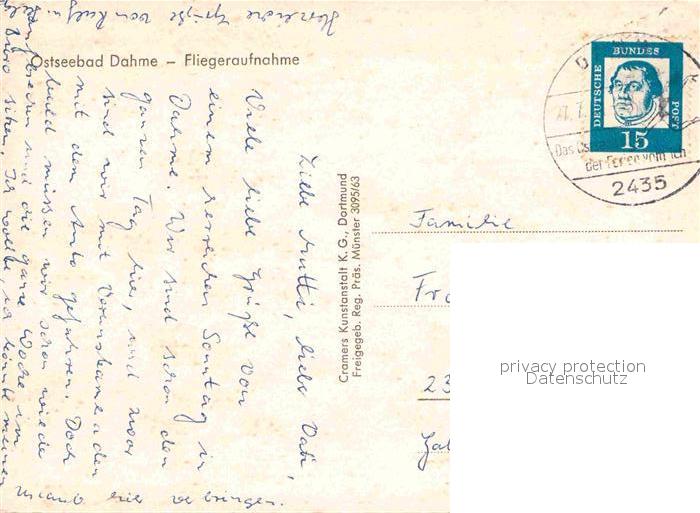 Ostseebad Dahme – Fliegeraufnahme
Liebe Mutti, lieber Vati,
Viele liebe Grüße von
einem herrlichen Sonntag in
Dahme. Wir sind schon den
ganzen Tag hier, und zwar
sind wir mit
mit dem Auto gefahren. Doch
bald müssen wir schon wieder
und die ganze Woche im
Büro sitzen. Ich wollte, ich könnte meinen
Urlaub hier verbringen.
Herzliche Grüße von
Cramers Kunstanstalt K.G., Dortmund
Freigegeb. Reg. Präs. Münster 3095/63
DEUTSCHE
BUNDES
POST
15
27.7.
Das
der Ferien vom Ich
2435
Familie
Fr
23
privacy protection
Datenschutz